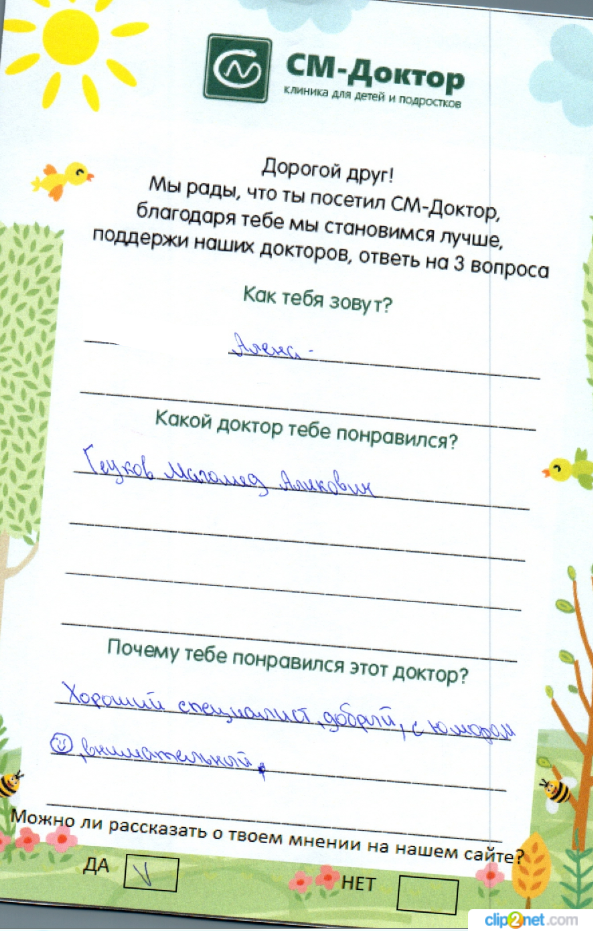 СМ-Доктор
клиника для детей и подростков
Дорогой друг!
Мы рады, что ты посетил СМ-Доктор,
благодаря тебе мы становимся лучше,
поддержи наших докторов, ответь на 3 вопроса
Как тебя зовут?
Алена
Какой доктор тебе понравился?
Геуков Магомед Аликович
Почему тебе понравился этот доктор?
Хороший специалист, добрый, с юмором
☺, внимательный,
Можно ли рассказать о твоем мнении на нашем сайте?
ДА V НЕТ
clip2net.com